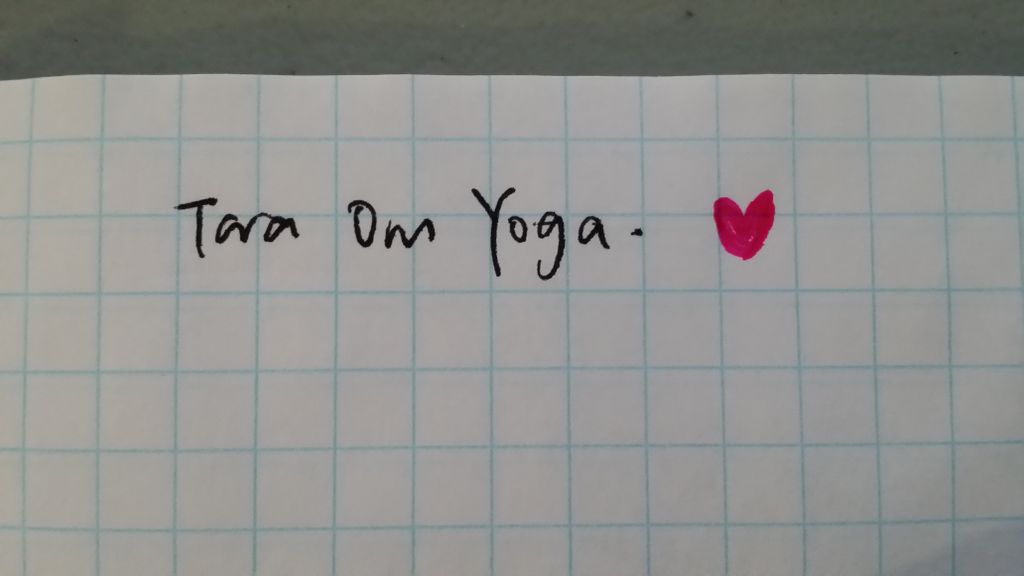 Tara Om Yoga.